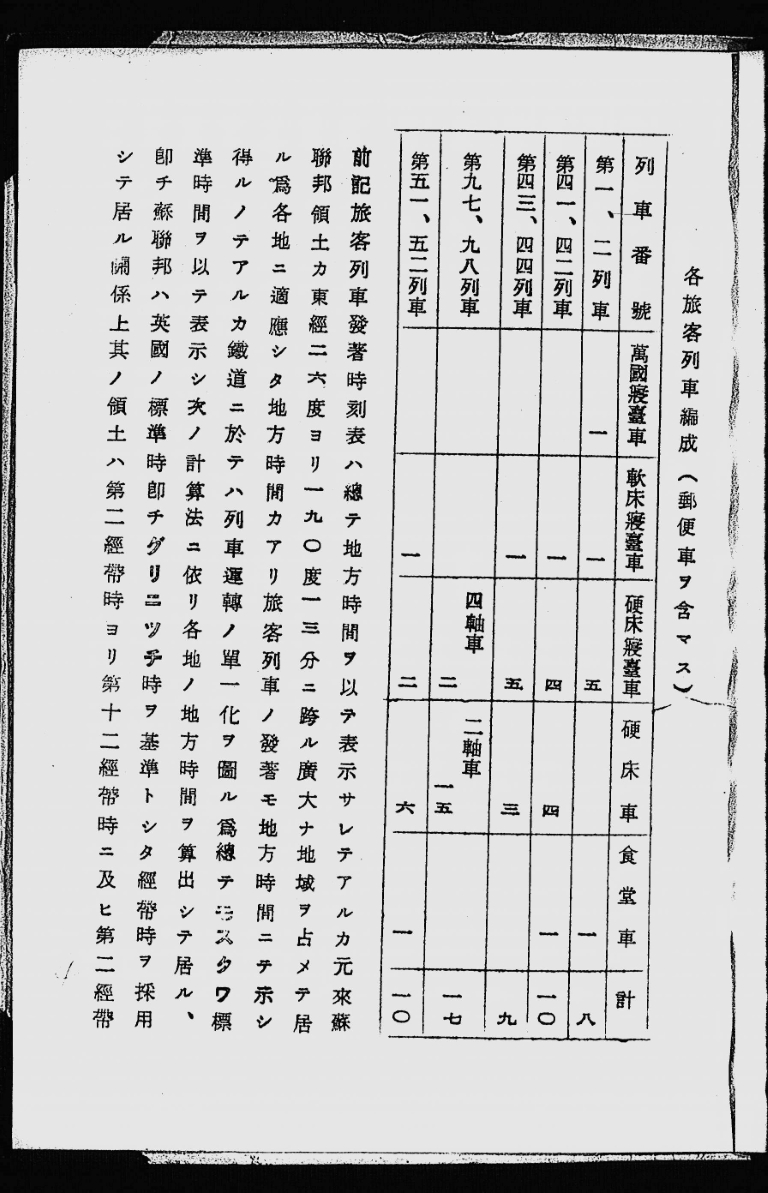 各旅客列車編成（郵便車ヲ含マス）
列車番號 萬國寢臺車 軟床寢臺車 硬床寢臺車 硬床車 食堂車 計
第一、二列車 一 一 五 一 八
第四一、四二列車 一 四 四 一 一〇
第四三、四四列車 一 五 三 九
第九七、九八列車 四軸車 二 二軸車 一五 一七
第五一、五二列車 一 二 六 一 一〇
前記旅客列車發著時刻表ハ總テ地方時間ヲ以テ表示サレテアルカ元來蘇
聯邦領土カ東經二六度ヨリ一九〇度一三分ニ跨ル廣大ナ地域ヲ占メテ居
ル爲各地ニ適應シタ地方時間カアリ旅客列車ノ發著モ地方時間ニテ示シ
得ルノテアルカ鐵道ニ於テハ列車運轉ノ單一化ヲ圖ル爲總テモスクワ標
準時間ヲ以テ表示シ次ノ計算法ニ依リ各地ノ地方時間ヲ算出シテ居ル、
卽チ蘇聯邦ハ英國ノ標準時卽チグリニツチ時ヲ基準トシタ經帶時ヲ採用
シテ居ル關係上其ノ領土ハ第二經帶時ヨリ第十二經帶時ニ及ヒ第二經帶